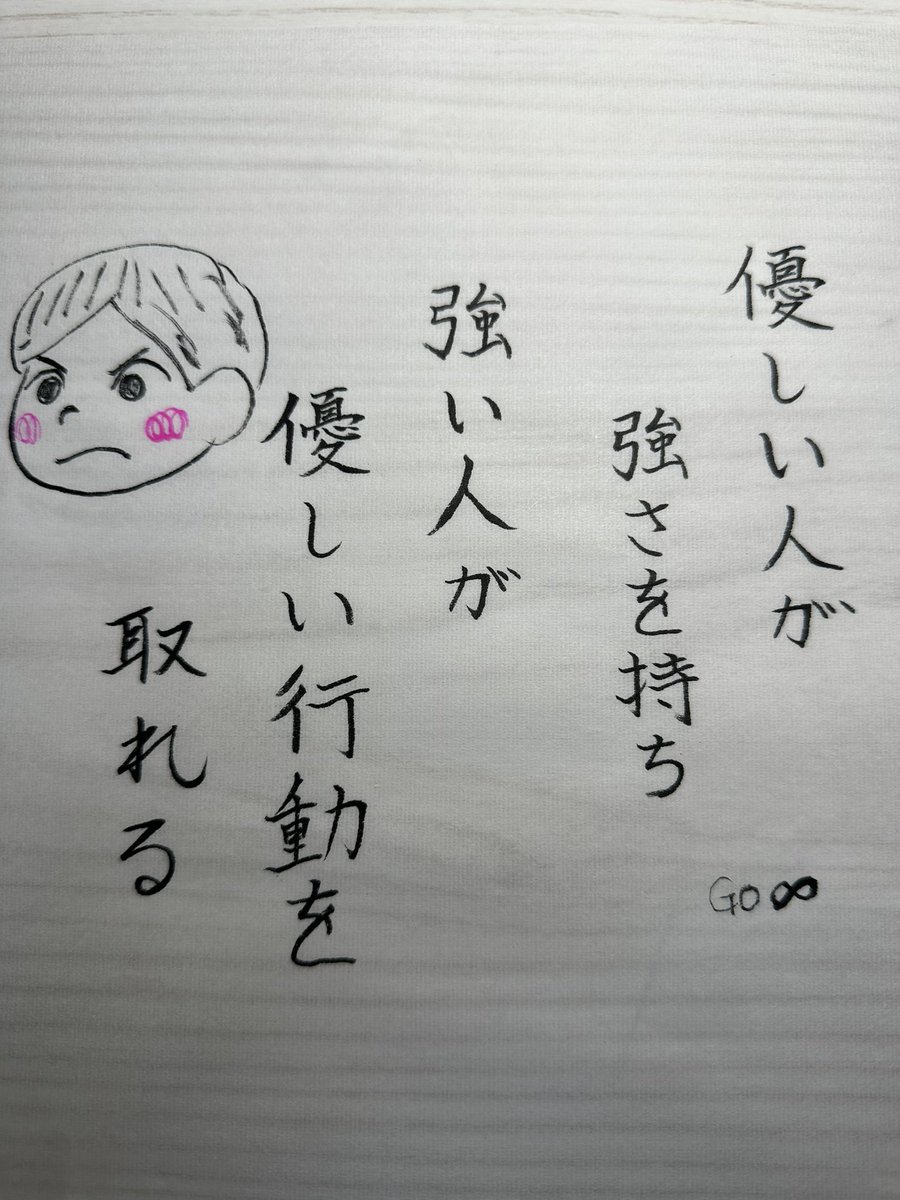 優しい人が
強さを持ち
強い人が
優しい行動を
取れる
GO∞